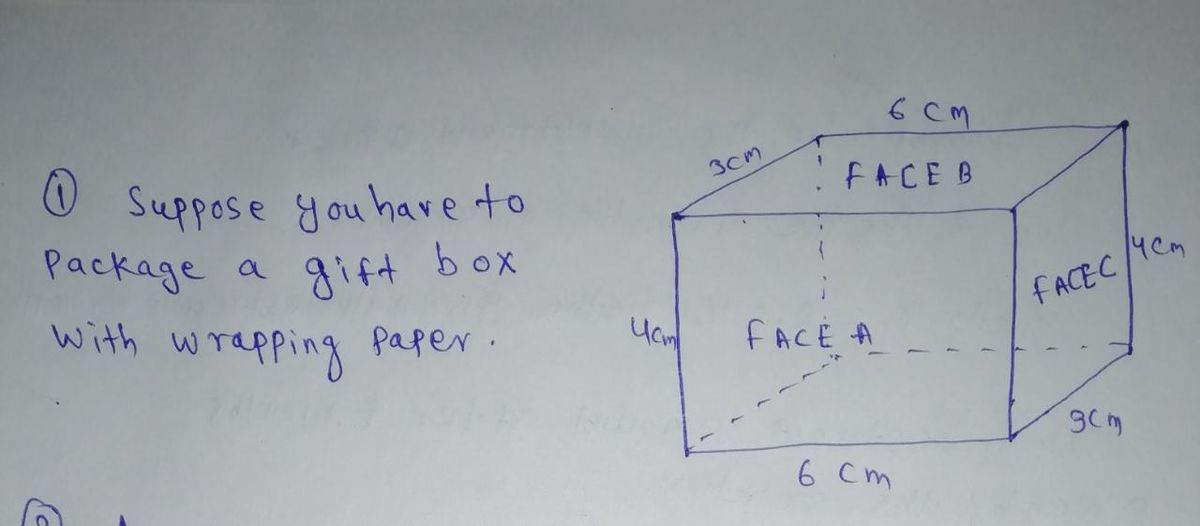 ① Suppose you have to
Package a gift box
With wrapping Paper.
6 cm
3cm
FACE B
4cm
FACE C
4cm
FACE A
3cm
6 cm